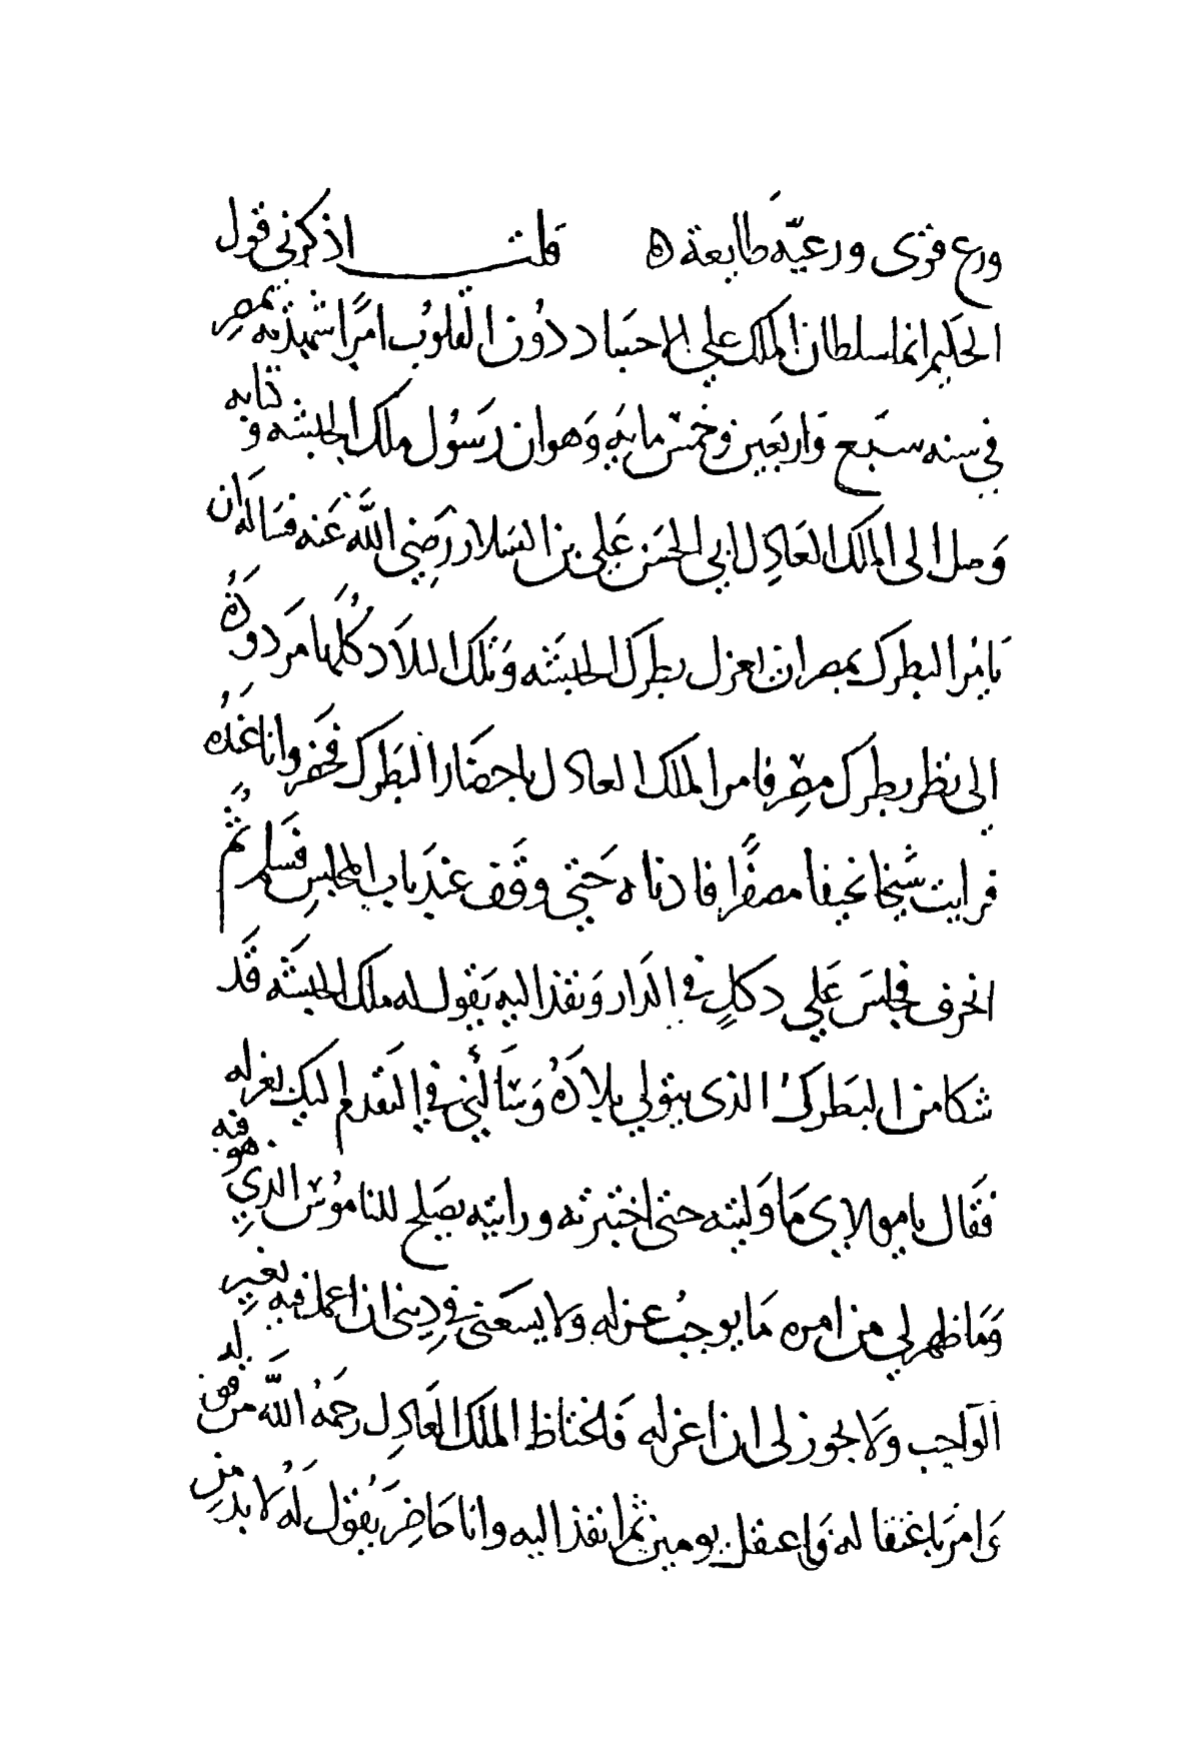 ورع قوى ورعيّه طايعة ه قلت اذكرنى قول
الحكيم انما سلطان الملك علي الاجساد دون القلوب امرًا شهدته بمصر
في سنه سبع واربعين وخمس مايه وهو ان رسول ملك الحبشه وكتابه
وصل الى الملك العادل ابي الحسن علي بن السلار رضي الله عنه فساله ان
يامر البطرك بمصر ان يعزل بطرك الحبشه وتلك البلاد كلها مردودة
الى نظر بطرك مصر فامر الملك العادل باحضار البطرك فحضر وانا عنده
فرايت شيخا نحيفا مصفرًا فادناه حتي وقف عند باب المجلس فسلم ثم
انحرف فجلس علي دكلٍ في الدار ونفذ اليه يقول له ملك الحبشه قد
شكا من البطرك الذى يتولي بلاده وسالني في التقدم اليك بعزله
فقال يا مولاي ما وليته حتى اختبرته ورايته يصلح للناموس الذي هو فيه
وما ظهر لي من امره ما يوجب عزله ولا يسعنى في ديني ان اعمل فيه بغير
الواجب ولا يجوز لى ان اعزله فاغتاظ الملك العادل رحمه الله من قوله
وامر باعتقاله فاعتقل يومين ثم انفذ اليه وانا حاضر يقول له لا بد من